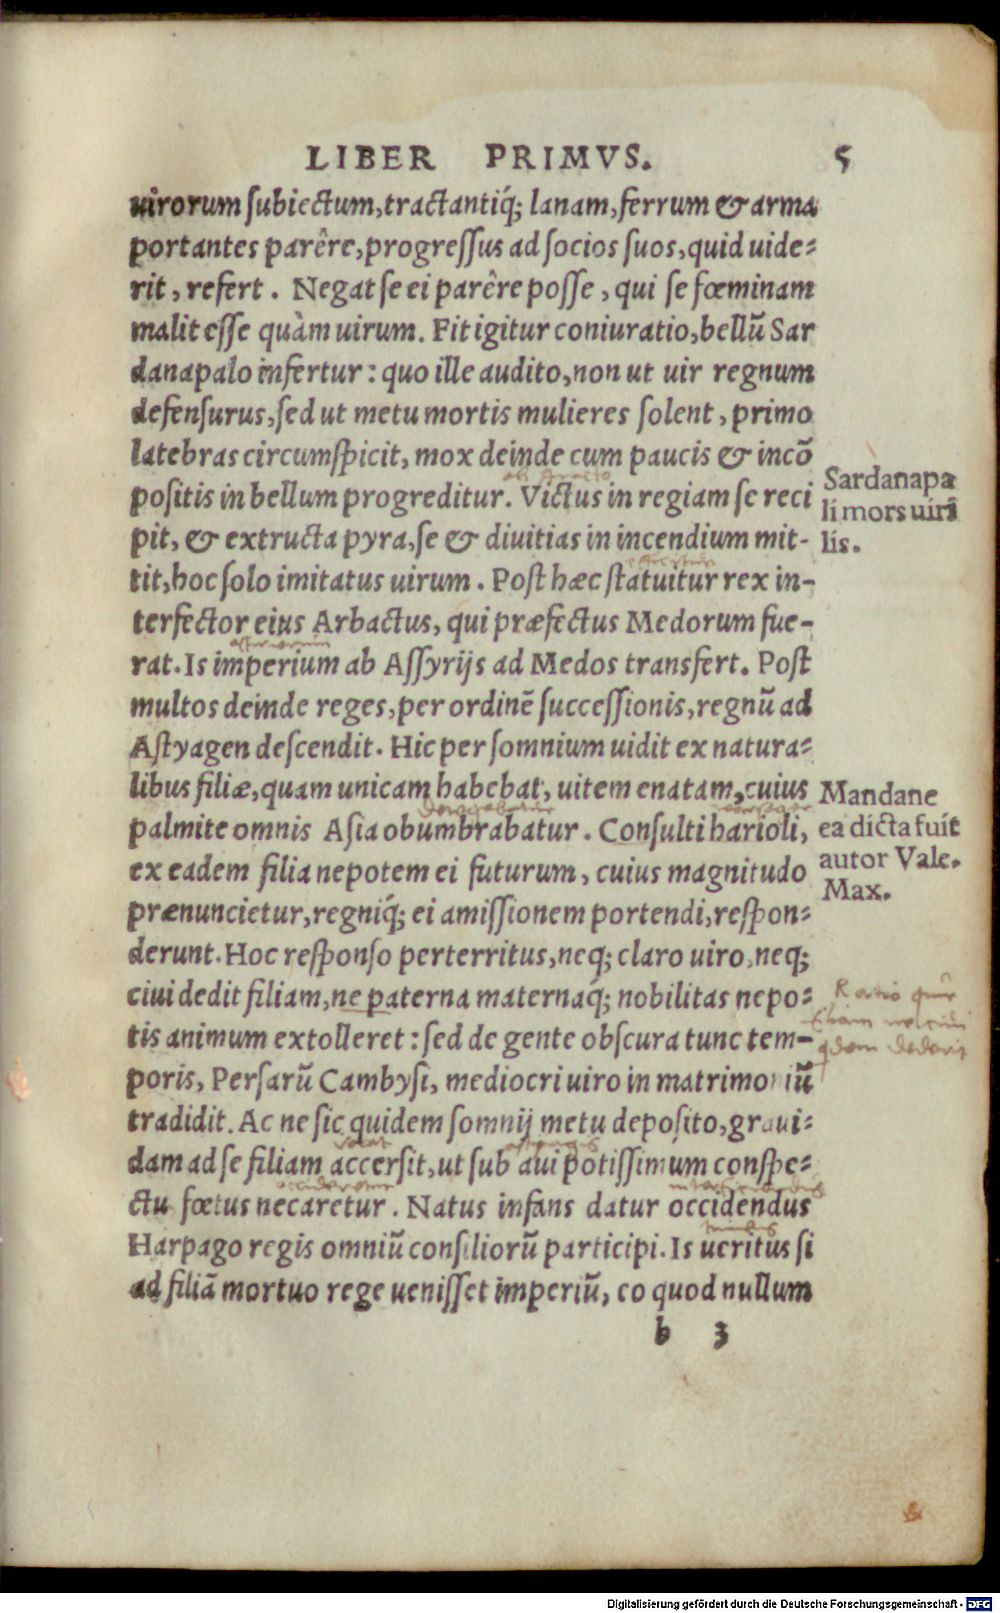 LIBER PRIMVS. 5
uirorum subiectum, tractantiq́; lanam, ferrum & arma
portantes parêre, progressus ad socios suos, quid uide=
rit, refert. Negat se ei parêre posse, qui se fœminam
malit esse quàm uirum. Fit igitur coniuratio, bellũ Sar
danapalo infertur: quo ille audito, non ut uir regnum
defensurus, sed ut metu mortis mulieres solent, primo
latebras circumspicit, mox deinde cum paucis & incõ
positis in bellum progreditur. Victus in regiam se reci
pit, & extructa pyra, se & diuitias in incendium mit-
tit, hoc solo imitatus uirum. Post hæc statuitur rex in-
terfector eius Arbactus, qui præfectus Medorum fue-
rat. Is imperium ab Assyrijs ad Medos transfert. Post
multos deinde reges, per ordinẽ successionis, regnũ ad
Astyagen descendit. Hic per somnium uidit ex natura=
libus filiæ, quam unicam habebat, uitem enatam, cuius
palmite omnis Asia obumbrabatur. Consulti harioli,
ex eadem filia nepotem ei futurum, cuius magnitudo
prænuncietur, regniq́; ei amissionem portendi, respon=
derunt. Hoc responso perterritus, neq; claro uiro, neq;
ciui dedit filiam, ne paterna maternaq́; nobilitas nepo=
tis animum extolleret: sed de gente obscura tunc tem-
poris, Persarũ Cambysi, mediocri uiro in matrimoniũ
tradidit. Ac ne sic quidem somnij metu deposito, graui=
dam ad se filiam accersit, ut sub aui potissimum conspe=
ctu fœtus necaretur. Natus infans datur occidendus
Harpago regis omniũ consiliorũ participi. Is ueritus si
ad filiã mortuo rege uenisset imperiũ, eo quod nullum
b 3
Sardanapa
li mors uiri
lis.
Mandane
ea dicta fuit
autor Vale.
Max.
Digitalisierung gefördert durch die Deutsche Forschungsgemeinschaft - DFG